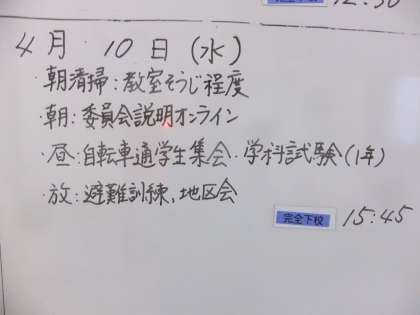 12:30
4月 10日(水)
・朝清掃:教室そうじ程度
・朝:委員会説明オンライン
・昼:自転車通学生集会・学科試験(1年)
・放:避難訓練、地区会
完全下校 15:45